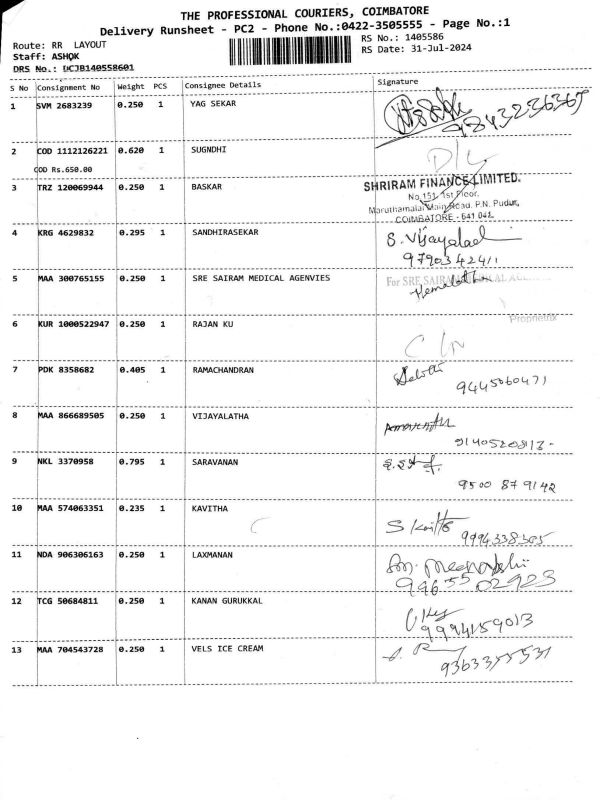 THE PROFESSIONAL COURIERS, COIMBATORE
Delivery Runsheet - PC2 - Phone No.:0422-3505555 - Page No.:1
Route: RR LAYOUT
RS No.: 1405586
Staff: ASHOK
RS Date: 31-Jul-2024
DRS No.: DCJB140558601
S No Consignment No Weight PCS Consignee Details Signature
1 SVM 2683239 0.250 1 YAG SEKAR
9843236365
2 COD 1112126221 0.620 1 SUGNDHI D/L
COD Rs.650.00
3 TRZ 120069944 0.250 1 BASKAR SHRIRAM FINANCE LIMITED.
No.151, 1st Floor,
Maruthamalai Main Road, P.N. Pudur,
COIMBATORE - 641 041.
4 KRG 4629832 0.295 1 SANDHIRASEKAR S. Vijayalaal
9790342411
5 MAA 300765155 0.250 1 SRE SAIRAM MEDICAL AGENVIES For SRE SAIRAM MEDICAL
Hemalatha
Proprietrix
6 KUR 1000522947 0.250 1 RAJAN KU
7 PDK 8358682 0.405 1 RAMACHANDRAN
9445060471
8 MAA 866689505 0.250 1 VIJAYALATHA
9140520813-
9 NKL 3370958 0.795 1 SARAVANAN
9500 879142
10 MAA 574063351 0.235 1 KAVITHA
9994338305
11 NDA 906306163 0.250 1 LAXMANAN
99655 02923
12 TCG 50684811 0.250 1 KANAN GURUKKAL
9994159013
13 MAA 704543728 0.250 1 VELS ICE CREAM
9363355531